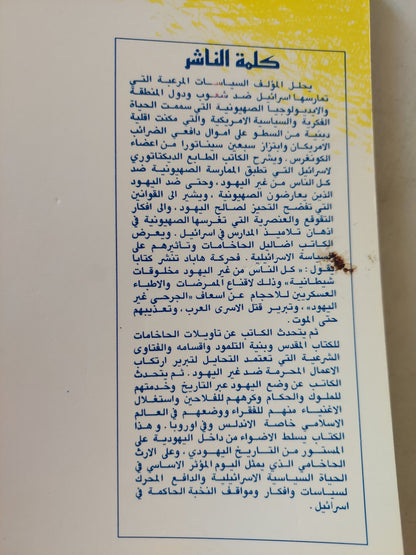 كلمة الناشر
يحلل المؤلف السياسات المرعبة التي
تمارسها اسرائيل ضد شعوب ودول المنطقة
والايديولوجيا الصهيونية التي سممت الحياة
الفكرية والسياسية الامريكية والتي مكنت اقلية
دينية من السطو على اموال دافعي الضرائب
الامريكان وابتزاز سبعين سيناتورا من اعضاء
الكونغرس. ويشرح الكاتب الطابع الديكتاتوري
لاسرائيل التي تطبق الممارسة الصهيونية ضد
كل الناس من غير اليهود، وحتى ضد اليهود
الذين يعارضون الصهيونية، ويشير الى القوانين
التي تفضح التحيز لصالح اليهود، والى افكار
التقوقع والعنصرية التي تغرسها الصهيونية في
اذهان تلاميذ المدارس في اسرائيل. ويعرض
الكاتب اضاليل الحاخامات وتاثيرهم على
السياسة الاسرائيلية. فحركة هاباد تنشر كتابا
يقول: «كل الناس من غير اليهود مخلوقات
شيطانية»، وذلك لاقناع الممرضات والاطباء
العسكريين للاحجام عن اسعاف «الجرحى غير
اليهود»، وتبرير قتل الاسرى العرب، وتعذيبهم
حتى الموت.
ثم يتحدث الكاتب عن تاويلات الحاخامات
للكتاب المقدس وبنية التلمود وأقسامه والفتاوى
الشرعية التي تعتمد التحايل لتبرير ارتكاب
الاعمال المحرمة ضد غير اليهود. ثم يتحدث
الكاتب عن وضع اليهود عبر التاريخ وخدمتهم
للملوك والحكام وكرههم للفلاحين واستغلال
الاغنياء منهم للفقراء ووضعهم في العالم
الاسلامي خاصة الاندلس وفي اوروبا. وهذا
الكتاب يسلط الاضواء من داخل اليهودية على
المستور من التاريخ اليهودي، وعلى الارث
الحاخامي الذي يمثل اليوم المؤثر الاساسي في
الحياة السياسية الاسرائيلية والدافع المحرك
لسياسات وافكار ومواقف النخبة الحاكمة في
اسرائيل.